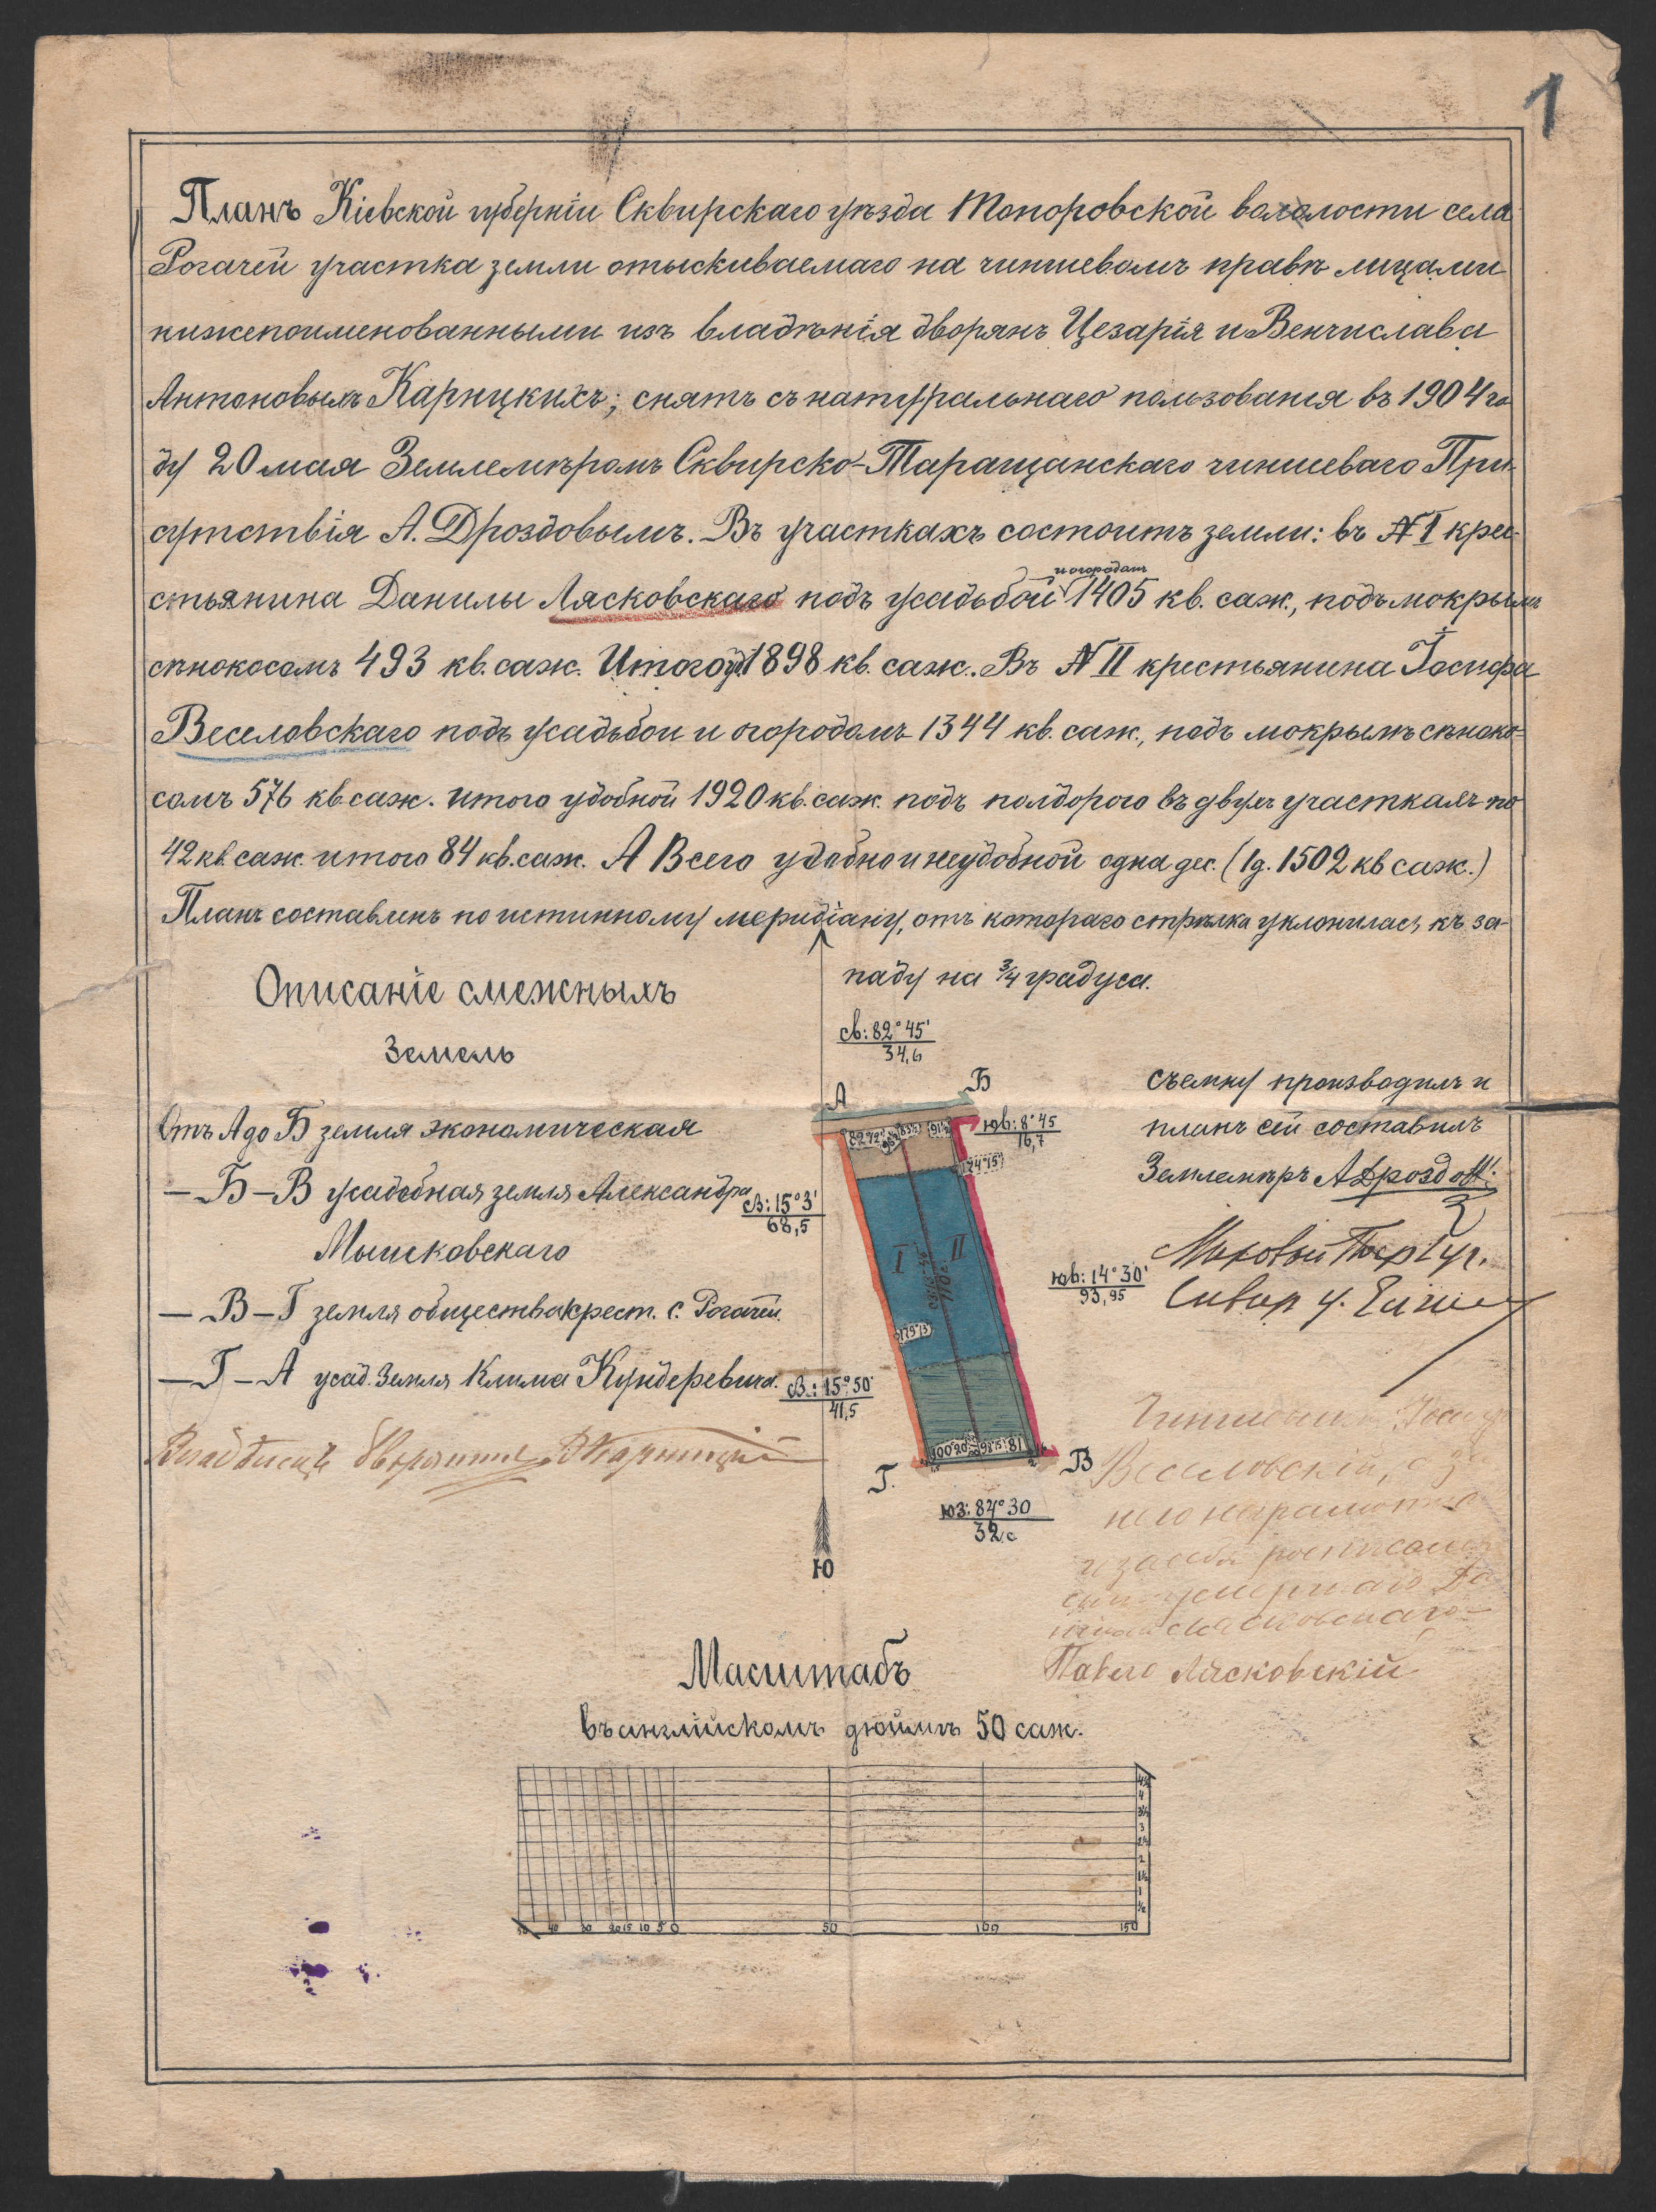 1
Планъ Кіевской губерніи Сквирскаго уѣзда Топоровской вололости села
Рогачей участка земли отыскиваемаго на чиншевомъ правѣ лицами
нижепоименованными изъ владѣнія дворянъ Цезарія и Венчислава
Антоновыхъ Карницкихъ; снятъ съ натуральнаго пользованія въ 1904 го
ду 20 мая Землемѣромъ Сквирско-Таращанскаго чиншеваго При-
сутствія А. Дроздовымъ. Въ участкахъ состоитъ земли: въ № I крес-
и огородам
стьянина Данилы Лясковскаго подъ усадьбой 1405 кв. саж., подъ мокрымъ
сѣнокосомъ 493 кв. саж. Итого уд. 1898 кв. саж. Въ № II крестьянина Іосифа
Веселовскаго подъ усадьбой и огородомъ 1344 кв. саж., подъ мокрымъ сѣноко-
сомъ 576 кв. саж. итого удобной 1920 кв. саж. подъ полдорого въ двухъ участкахъ по
42 кв. саж. итого 84 кв. саж. А Всего удобно и неудобной одна дес. (1 д. 1502 кв саж.)
Планъ составленъ по истинному меридіану, отъ котораго стрѣлка уклонилась къ за-
паду на ¾ градуса.
Описаніе смежныхъ
Земель
Отъ А до Б земля экономическая
— Б — В усадебная земля Александра
Мышковскаго
— В — Г земля общества крест. с. Рогачей.
— Г — А усад. Земля Клима Кундеревича.
Владѣлецъ дворянинъ В Карницкій
св: 82° 45'
34,6
А
Б
юв: 8° 45
16,7
св: 15° 3'
68,5
I
II
юв: 14° 30'
93,95
св.: 15° 50'
41,5
Г.
В
юз: 84° 30
32 с
Ю
съемку производилъ и
планъ сей составилъ
Землемѣръ А Дроздовъ
Веселовскій, а за
него неграмотнаго
и за себя росписался
сынъ умершаго Да
Павло Лясковскій
Масштабъ
въ англійскомъ дюймѣ 50 саж.
4½
4
3½
3
2½
2
1½
1
½
50 40 30 20 15 10 5 0 50 100 150